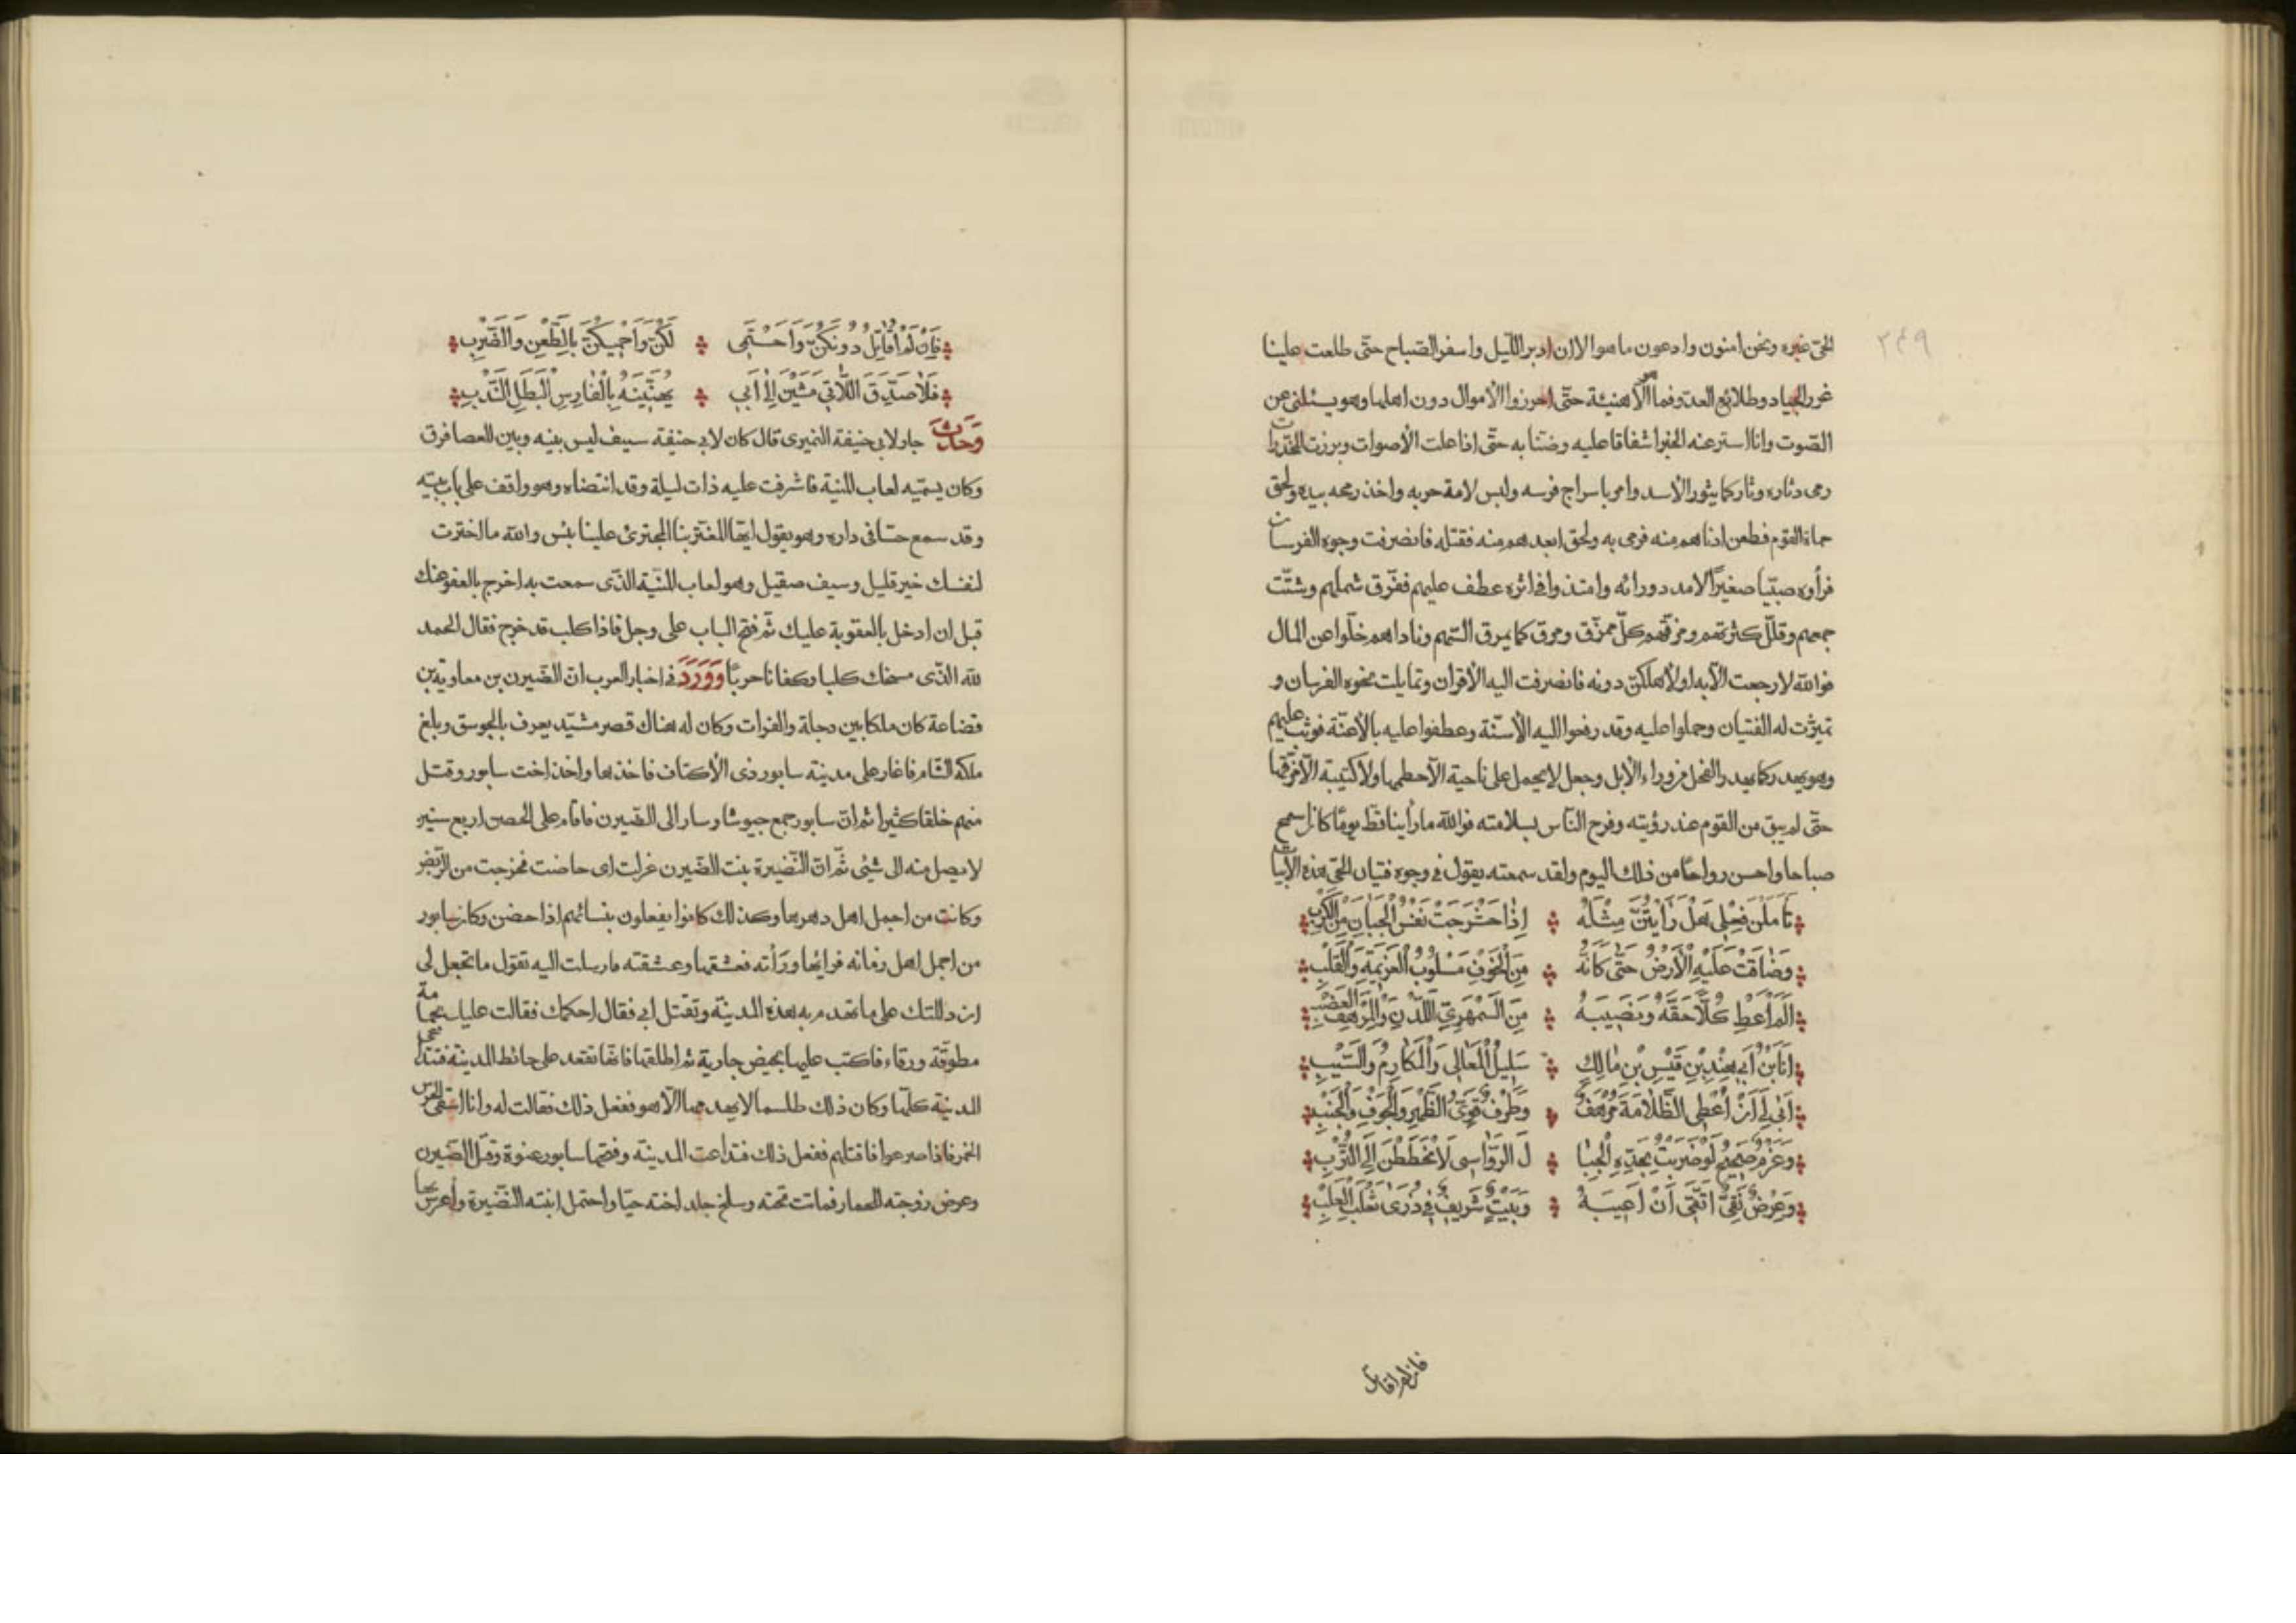 ٣٤٩
الحىّ غيره ونحن امنون وادعون ما هو الا ان ادبر اللّيل واسفر الصّباح حتّى طلعت علينا
غرر الجياد وطلائع العدّو فما هو الّا هنيئة حتّى احرزوا الأموال دون اهلها وهو يسئلنى عن
الصّوت وانا استر عنه الخبر اشفاقا عليه وضنّا به حتّى اذا علت الأصوات وبرزت المخدّرات
رمى دثاره وثار كما يثور الأسد وامر باسراج فرسه ولبس لامة حربه واخذ رمحه بيده ولحق
حماة القوم فطعن ادناهم منه فرمى به ولحق ابعدهم منه فقتله فانصرفت وجوه الفرسان
فرأوه صبيّا صغيرًا لا مدد ورائه عطف عليهم ففرّق شملهم وشتّت
جمعهم وقلّل كثرتهم ومزّقهم كلّ ممزّق ومرق كما يمرق السّهم وناداهم خلّوا عن المال
فوالله لا رجعت الّا به اولأهلكنّ دونه فانصرفت اليه الأقران وتمايلت نحوه الفرسان و
تميزّت له الفتيان وحملوا عليه وقد رفعوا اليه الأسنّة وعطفوا عليه بالأعنّة فوثب عليهم
وهو يهدر كما يهدر الفحل من وراء الأبل وجعل لا يحمل على ناحية الّا حطمها ولا كتيبة الّا فرّقها
حتّى لم يبق من القوم عند رؤيته وفرح النّاس بسلامته فوالله ما رأينا قطّ يومًا كان اسمح
صباحا واحسن رواحًا من ذلك اليوم ولقد سمعته يقول فى وجوه فتيان الحىّ هذه الأبيات
تَأَمَّلْنَ فِعْلِى هَلْ رَأَيْتُنَّ مِثْلَهُ اِذَا حَشْرَجَتْ نَفْسُ الْجَبَانِ مِنَ الْكَرْبِ
وَضَاقَتْ عَلَيْهِ الْأَرْضُ حَتّٰى كَاَنَّهُ مِنَ الْخَوْفِ مَسْلُوبُ الْعَزِيمَةِ وَالْقَلْبِ
اَلَمْ اُعْطِ كُلًّا حَقَّهُ وَنَصِيبَهُ مِنَ السَّمْهَرِىِّ اللَّدْنِ وَالْمُرْهَفِ الْعَضْبِ
اَنَا ابْنُ اَبِى هِنْدِ بْنِ قَيْسِ بْنِ مَالِكٍ سَلِيلُ الْمَعَالِى وَالْمَكَارِمِ وَالسَّيْبِ
اَبٰى لِى اَنْ اُعْطِى الظُّلَامَةَ مُرْهَفٌ وَطَرْفٌ قَوِىُّ الظَّهْرِ وَالْجَوْفِ وَالْجَنْبِ
وَعَزْمٌ صَحِيحٌ لَوْ ضَرَبْتُ بِحَدِّهِ الْجِبَا لَ الرَّوَاسِى لَانْحَطَطْنَ اِلَى التُّرْبِ
وَعِرْضٌ نَقِىٌّ اَتَّقِى اَنْ اَعِيبَهُ وَبَيْتٌ شَرِيفٌ فِى ذُرٰى ثَعْلَبَ الْغُلْبِ
فان لم اقاتل
فَاِنْ لَمْ اُقَاتِلْ دُونَكُنَّ وَاَحْتَمِى لَكُنَّ وَاَحْمِيكُنَّ بِالطَّعْنِ وَالضَّرْبِ
فَلَا صَدَقَ اللَّاتِى مَشَيْنَ اِلٰى اَبِى يُهَنِّينَهُ بِالْفَارِسِ الْبَطَلِ النَّدْبِ
وَحَدَّثَ جار لابى حنيفة النميرى قال كان لابى حنيفة سيف ليس بينه وبين العصا فرق
وكان يسمّيه لعاب المنية فاشرفت عليه ذات ليلة وقد انتضاه وهو واقف على باب بيته
وقد سمع حسّا فى داره وهو يقول ايّها المغترّ بنا المجترئ علينا بئس والله ما اخترت
لنفسك خير قليل وسيف صقيل وهو لعاب المنيّة الّذى سمعت به اخرج بالعفو عنك
قبل ان ادخل بالعقوبة عليك ثّم فتح الباب على وجل فاذا كلب قد خرج فقال الحمد
لله الّذى مسخك كلبا وكفانا حربًا وَوَرَدَ فى اخبار العرب انّ الضّيزن بن معاوية بن
قضاعة كان ملكا بين دجلة والفرات وكان له هناك قصر مشيّد يعرف بالجوسق وبلغ
ملكه الشّام فاغار على مدينة سابور ذى الأكتاف فاخذها واخذ اخت سابور وقتل
منهم خلقا كثيرا ثم انّ سابور جمع جيوشا وسار الى الضّيزن فاقام على الحصن اربع سنين
لا يصل منه الى شئ ثّم انّ النّضيرة بنت الضّيزن عركت اى حاضت فخرجت من الرّبض
وكانت من اجمل اهل دهرها وكذلك كانوا يفعلون بنسائهم اذا حضن وكان سابور
من اجمل اهل زمانه فرأيها ورأته فعشقها وعشقته فارسلت اليه تقول ما تجعل لى
ان دللتك على ما تهدم به هذه المدينة وتقتل ابى فقال احكمك فقالت عليك بحمامة
مطوقّة ورقاء فاكتب عليها بحيض جارية ثم اطلقها فانّها تقعد على حائط المدينة فتتداعى
المدينة كلّها وكان ذلك طلسما لا يهدمها الّا هو ففعل ذلك فقالت له وانا اسقى الحرس
الخمر فاذا صرعوا فاقتلهم ففعل ذلك فتداعت المدينة وفتحها سابور عنوة وقتل الضّيزن
زوجته فماتت تحته وسلخ جلد اخته حيّا واحتمل ابنته النّضيرة وأعرس بها